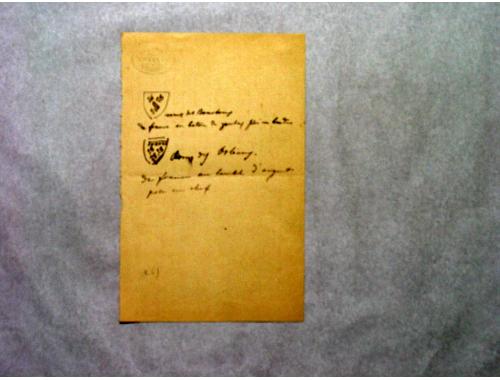 armes des Bourbons
de france au baton de gueules péri en bande
Armes des Orleans.
de france au lambel d'argent
posé en chef